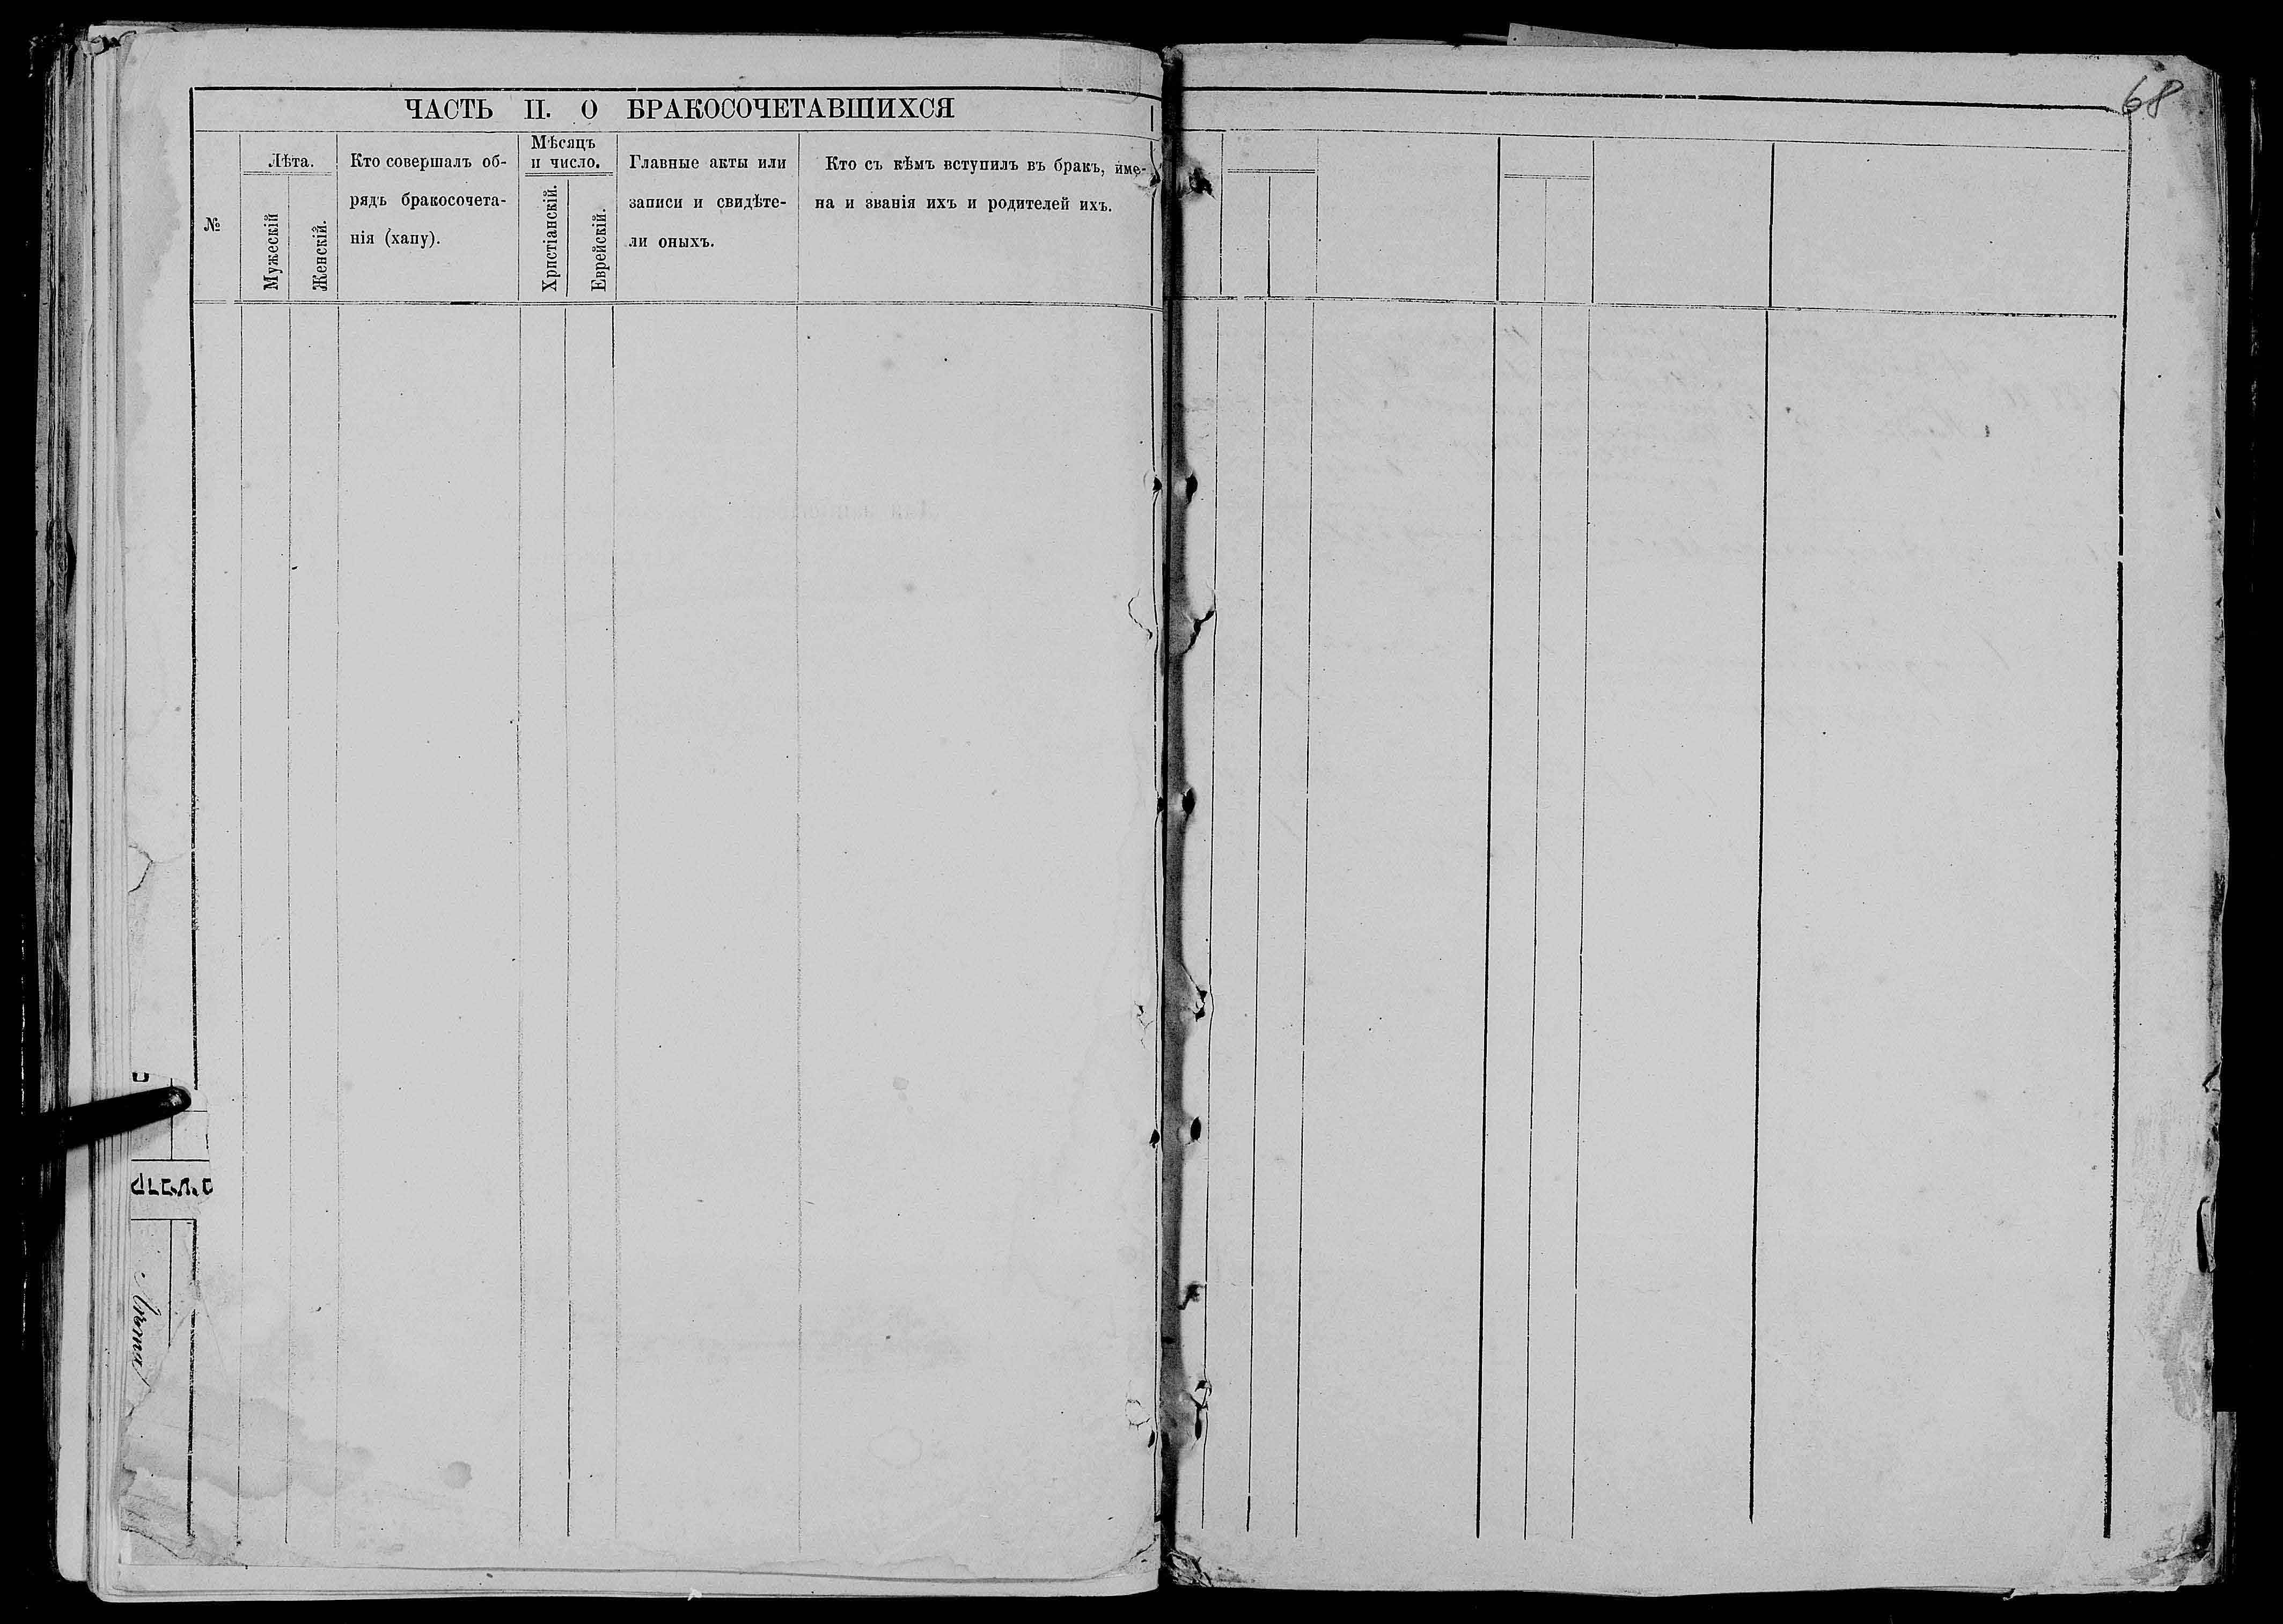 68
ЧАСТЬ II. О БРАКОСОЧЕТАВШИХСЯ
№
Лѣта.
Мужескій
Женскій.
Кто совершалъ об-
рядъ бракосочета-
нія (хапу).
Мѣсяцъ
и число.
Христіанскій.
Еврейскій.
Главные акты или
записи и свидѣте-
ли оныхъ.
Кто съ кѣмъ вступилъ въ бракъ, име-
на и званія ихъ и родителей ихъ.